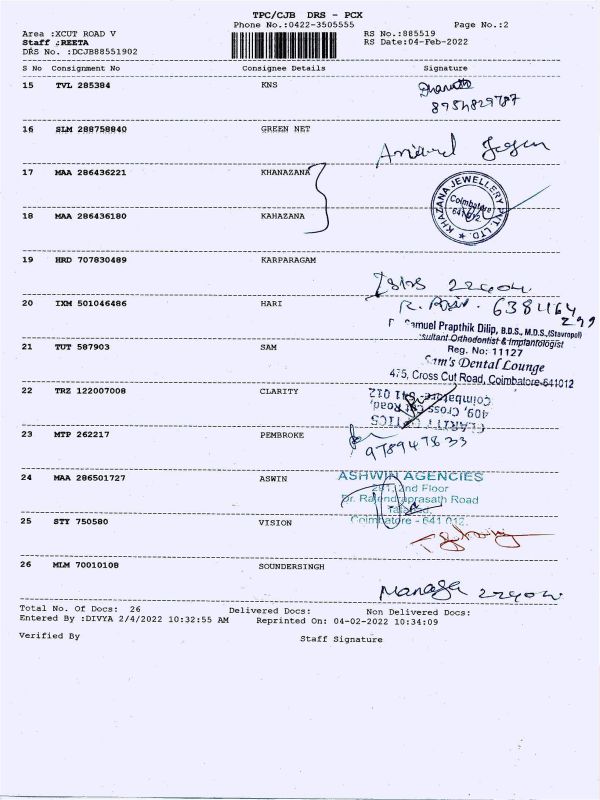 TPC/CJB DRS - PCX
Phone No.:0422-3505555 Page No.:2
Area :XCUT ROAD V RS No.:885519
Staff :REETA RS Date:04-Feb-2022
DRS No. :DCJB88551902
S No Consignment No Consignee Details Signature
15 TVL 285384 KNS
8754829787
16 SLM 288758840 GREEN NET
17 MAA 286436221 KHANAZANA
KHAZANA JEWELLERY PVT. LTD.
Coimbatore
641 012
18 MAA 286436180 KAHAZANA
19 HRD 707830489 KARPARAGAM
20 IXM 501046486 HARI
21 TUT 587903 SAM
Samuel Prapthik Dilip, B.D.S., M.D.S.,(Stavropol)
Orthodontist & Implantologist
Reg. No: 11127
Sam's Dental Lounge
475, Cross Cut Road, Coimbatore-641012
22 TRZ 122007008 CLARITY
CLARITY OPTICS
409, Cross Cut Road,
Coimbatore-641 012
23 MTP 262217 PEMBROKE
9789447833
24 MAA 286501727 ASWIN
ASHWIN AGENCIES
2nd Floor
Dr. Rajendraprasath Road
Coimbatore - 641 012.
25 STY 750580 VISION
26 MLM 70010108 SOUNDERSINGH
Total No. Of Docs: 26 Delivered Docs: Non Delivered Docs:
Entered By :DIVYA 2/4/2022 10:32:55 AM Reprinted On: 04-02-2022 10:34:09
Verified By Staff Signature